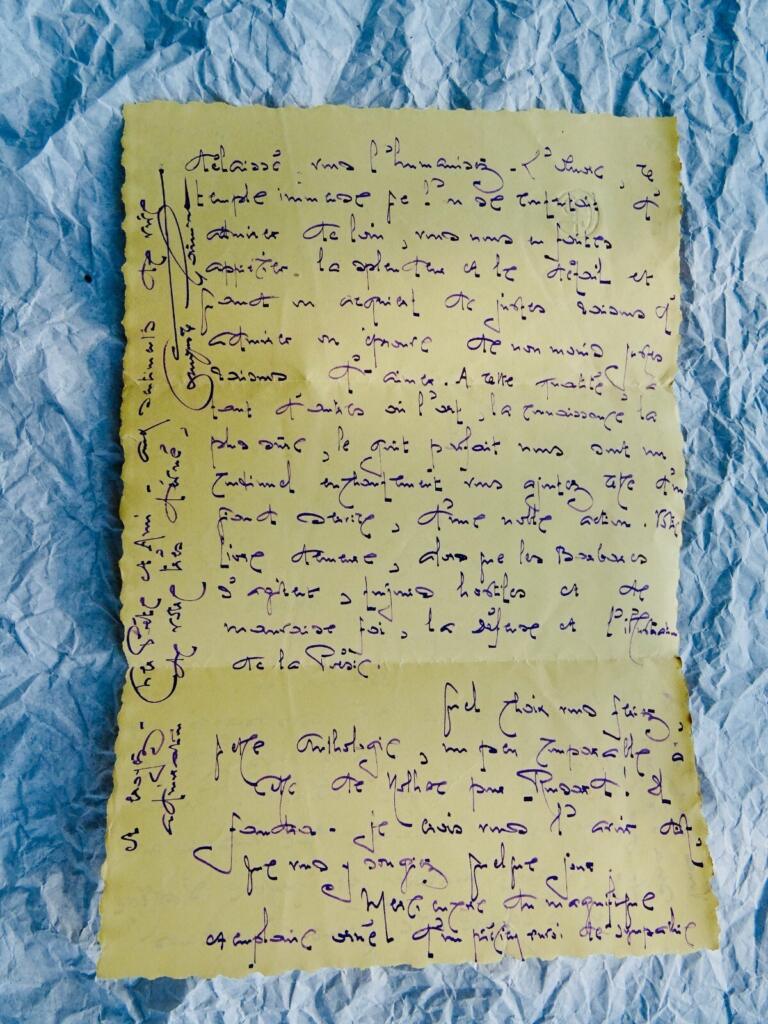 délaissé, vous l'humanisez. L'œuvre, ce
temple immense que l'on se contentait d'
admirer de loin, vous nous en faites
apprécier la splendeur et le détail et
quand on acquiert de justes raisons d'
admirer on éprouve de non moins justes
raisons d'aimer. A cette qualité
tant d'autres où l'art, la connaissance la
plus sûre, le goût parfait nous sont un
continuel enchantement vous ajoutez celle d'un
grand service, d'une noble action. Votre
livre demeure, alors que les Barbares
s'agitent, toujours hostiles et de
mauvaise foi, la défense et l'illustration
de la Poésie.
Quel choix vous feriez,
quelle Anthologie, un peu comparable à
celle de Nolhac pour Ronsard! Il
faudra - je crois vous l'avoir dit,
que vous y songiez quelque jour.
Merci encore du magnifique
exemplaire orné d'un précieux envoi de sympathie
et croyez - Cher Poète et Ami - aux sentiments de vive
admiration de votre très dévoué,